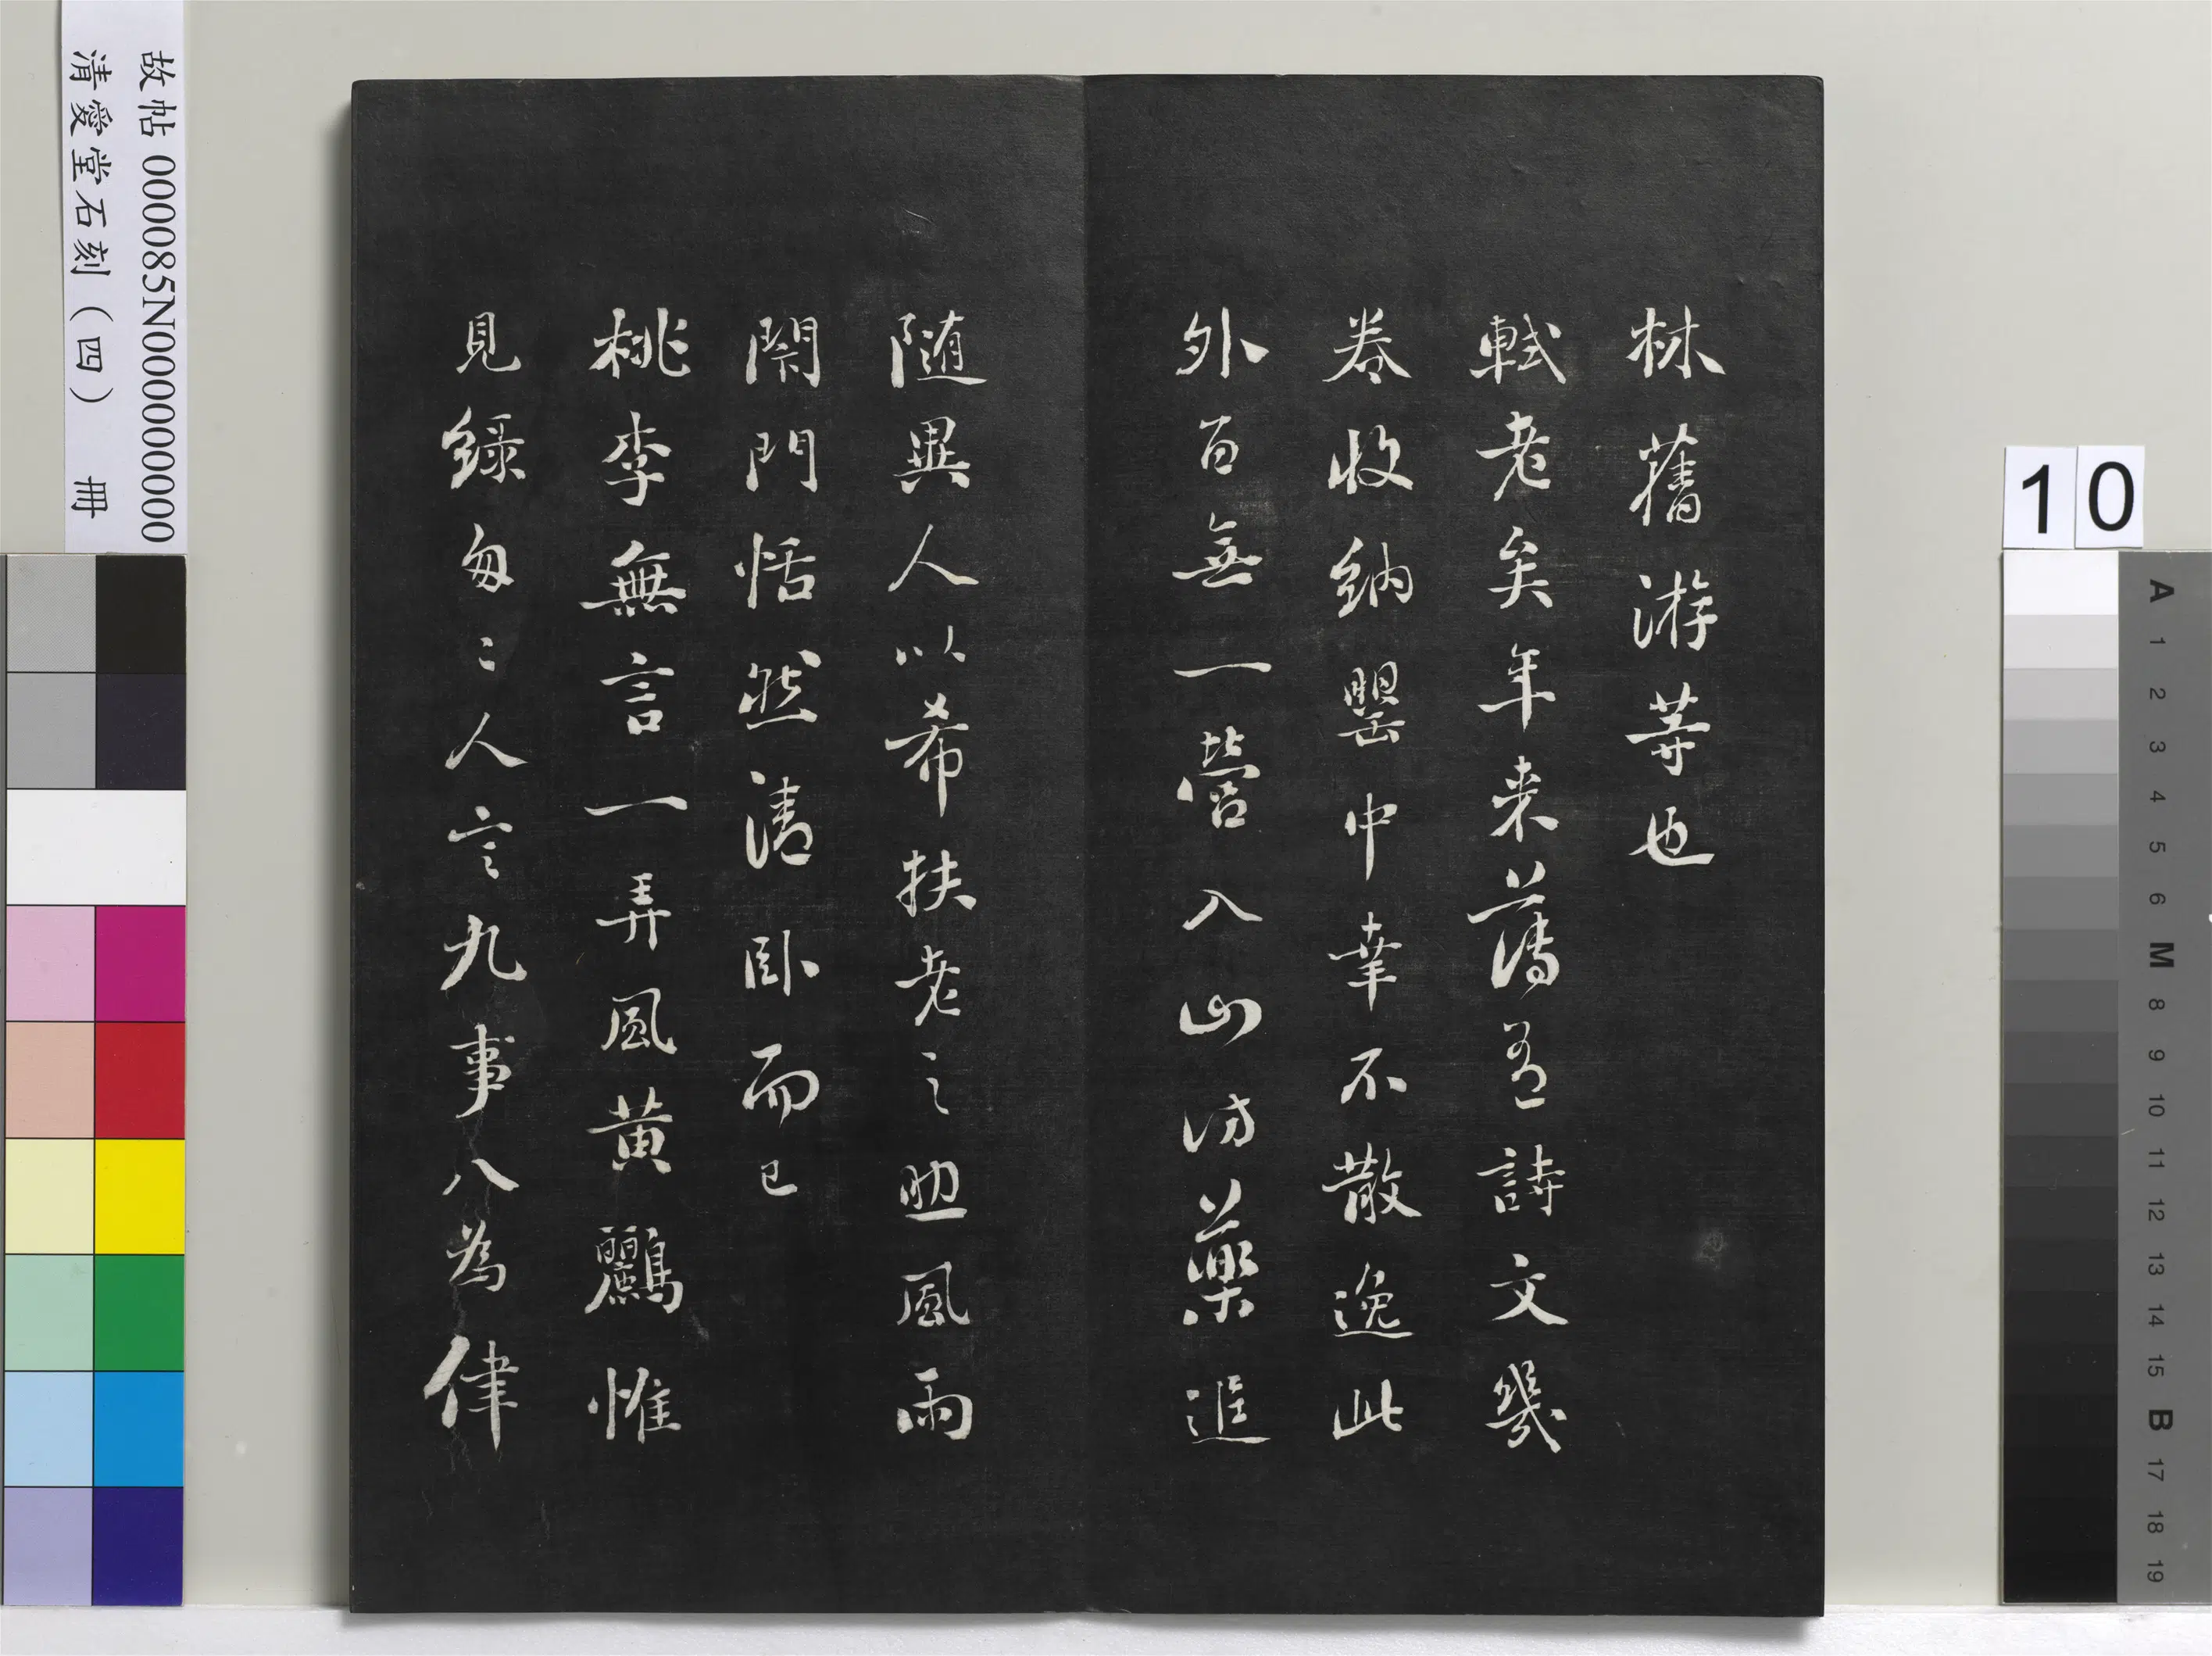 林舊游等也
軾老矣年来薄有詩文幾
卷收納罌中幸不散逸此
外百無一營入山訪藥進
隨異人以希扶老之助風雨
閇門恬然清卧而已
桃李無言一弄風黃鸝惟
見綠匆〻人言九事八為律
故帖 000085N000000000
清愛堂石刻(四) 冊
10
A 1 2 3 4 5 6 M 8 9 10 11 12 13 14 15 B 17 18 19